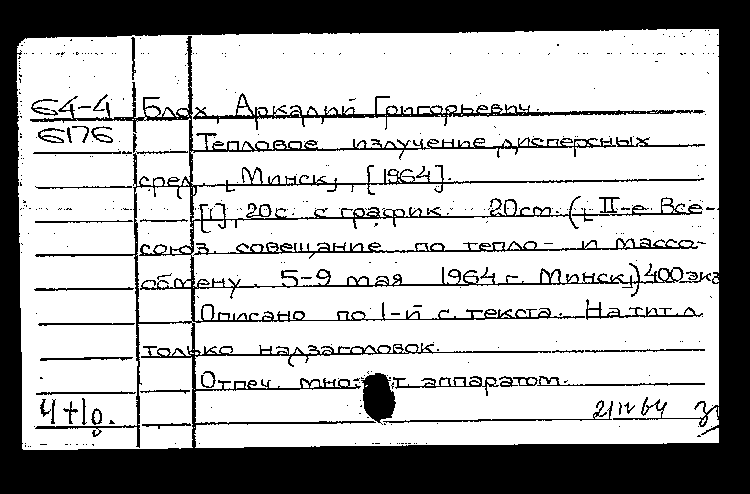 64-4 Блох, Аркадий Григорьевич.
6176 Тепловое излучение дисперсных
сред. [Минск], [1964].
[1], 20с. с график. 20см. ([II-е Все-
союз. совещание по тепло- и массо-
обмену. 5-9 мая 1964 г. Минск]) 400экз
Описано по 1-й с. текста. На тит.л.
только надзаголовок.
Отпеч. аппаратом.
4+1о. 64